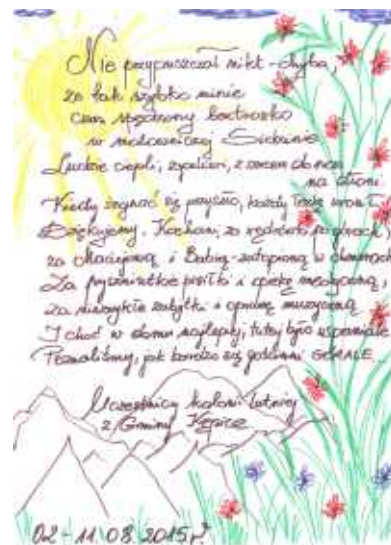 Nie przypuszczał nikt - chyba,
że tak szybko minie
czas spędzony beztrosko
w malowniczej Sidzinie
Ludzie ciepli, życzliwi, z sercem
na dłoni.
Kiedy żegnać się przyszło, każdy łzę
Dziękujemy Kochani, za wędrówki po górach,
za Macierzową i Babią - zatopioną w chmurach
Za pyszniutkie posiłki i opiekę medyczną,
za niezwykłe zabytki i oprawę muzyczną
I choć w domu najlepiej, tutaj było wspaniale.
Poznaliśmy, jak bardzo są gościnni GÓRALE.
Uczestnicy kolonii letniej
z Gminy Kępice
02 - 11.08.2015 r.